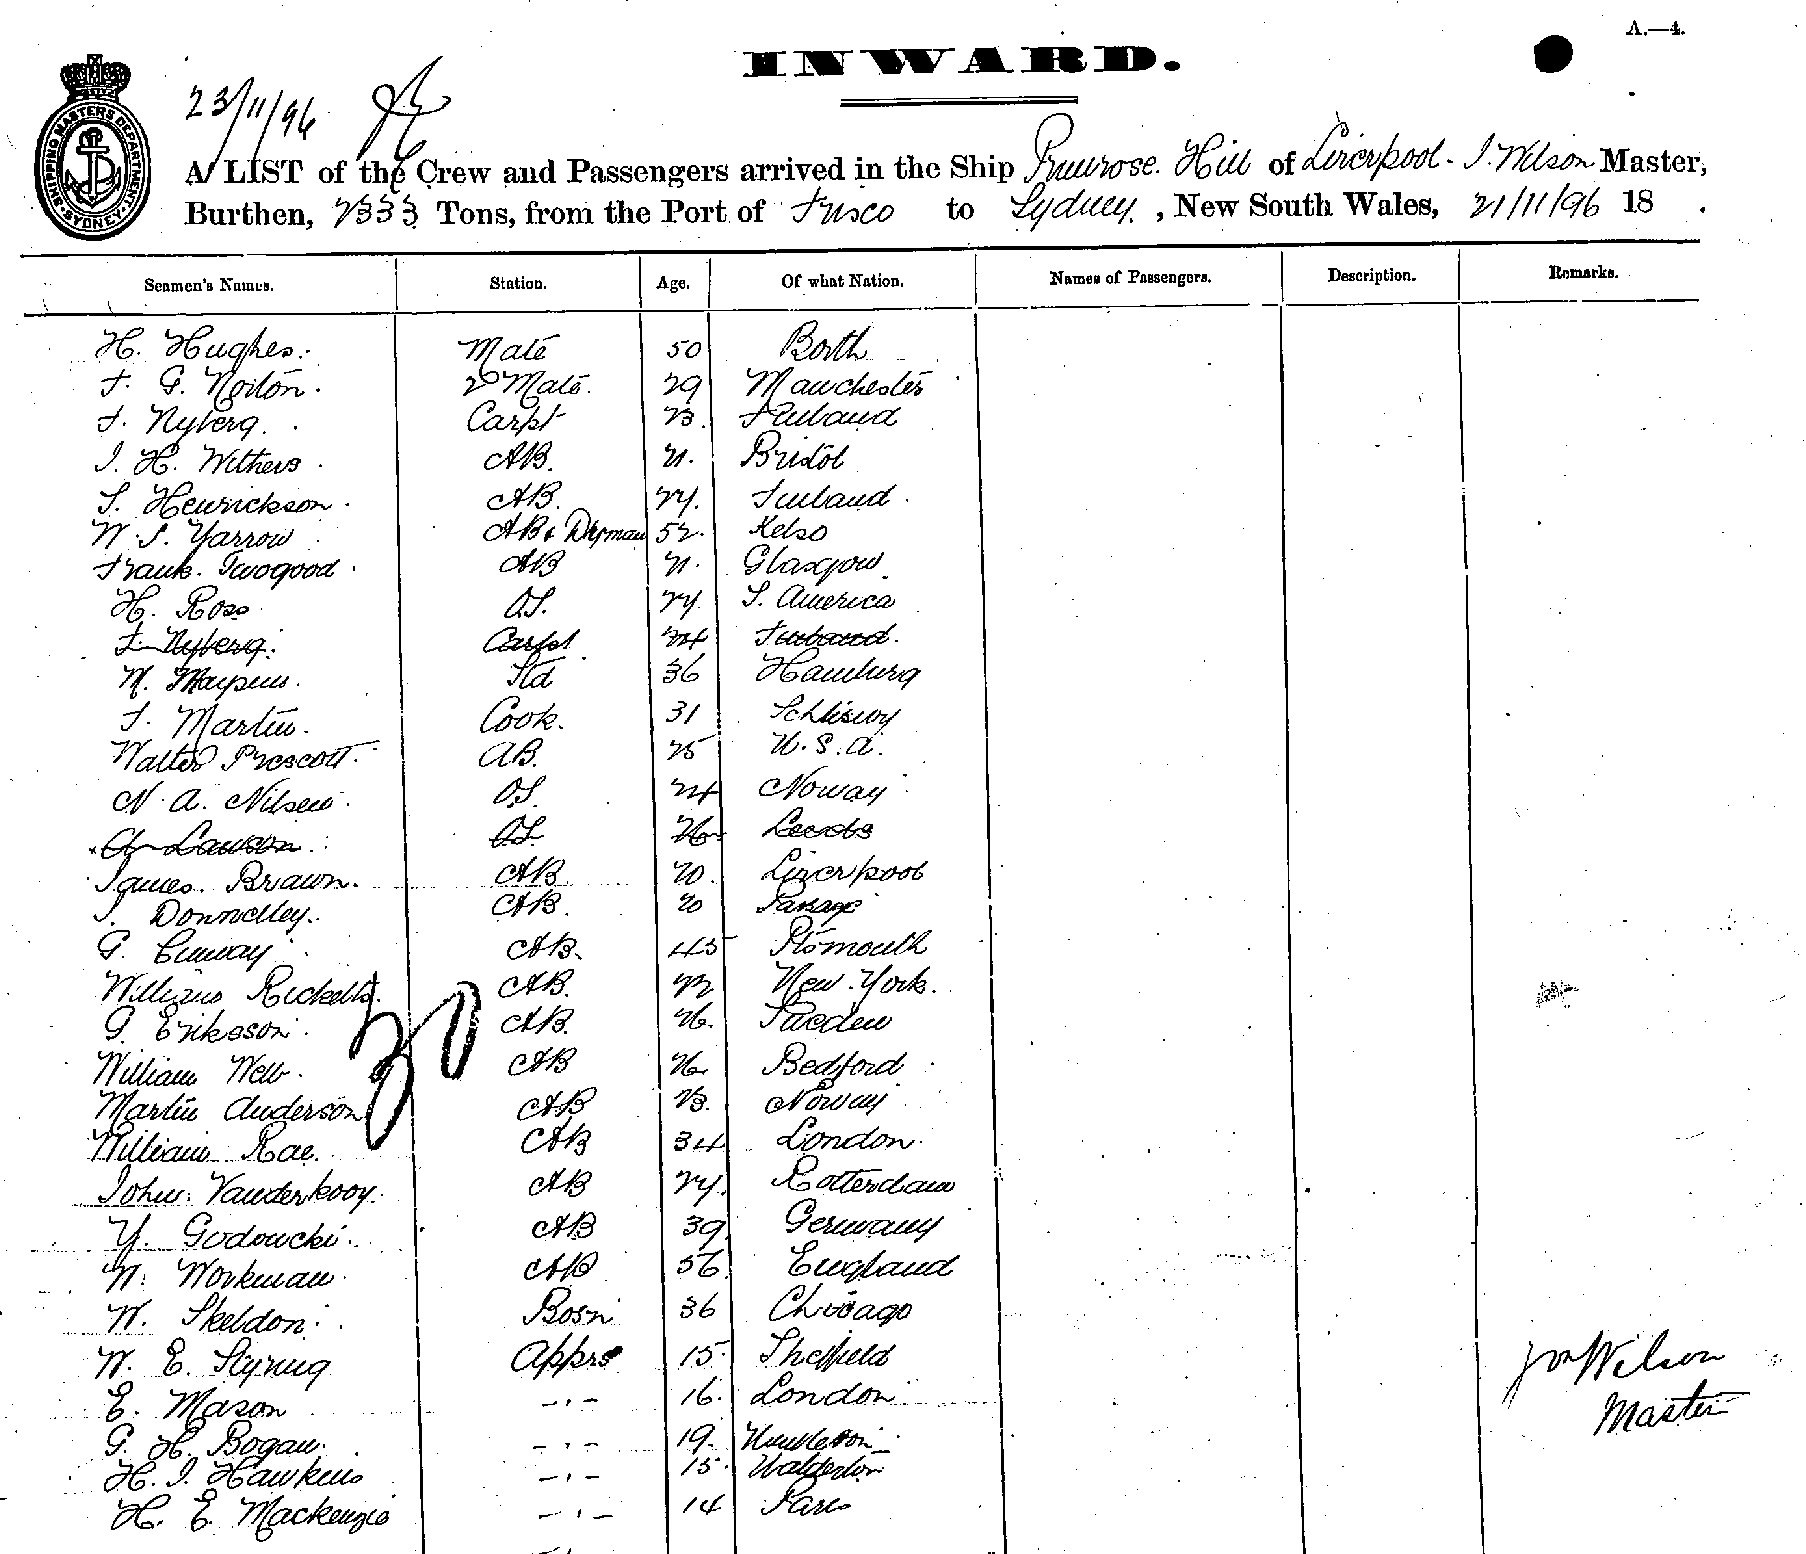 A.—4.
INWARD.
SHIPPING MASTERS DEPARTMENT. SYDNEY.
23/11/96
A LIST of the Crew and Passengers arrived in the Ship Primrose Hill of Liverpool - J. Wilson Master,
Burthen, 2333 Tons, from the Port of Frisco to Sydney, New South Wales, 21/11/96 18 .
Seamen's Names. Station. Age. Of what Nation. Names of Passengers. Description. Remarks.
H. Hughes. Mate 50 Borth
F. G. Norton. 2d Mate. 29 Manchester
F. Nyberg. Carpt 23. Finland
J. H. Withers AB. 21. Bristol
S. Henrickson AB. 24. Finland.
W. S. Yarrow AB & Dkyman 52. Kelso
Frank. Twogood. AB 21. Glasgow.
H. Ross OS. 24. S. America
F. Nyberg. Carpt 24 Finland.
Std 36 Hamburg
F. Martin. Cook. 31
Walter Prescott. AB. 25 U.S.A.
N. A. Nilsen. OS. 24 Noway
Lawson OS 26 Leeds
James. Brawn. AB 20. Liverpool
J. Donnelley. AB. 20
G. AB. 45 Plymouth
William Ricketts. AB. 22 New York.
G. Eriksson AB. 26. Sweden
William Webb. AB 26 Bedford
Martin Anderson AB 23. Noway
William Rae. AB 34 London.
John. Vanderkooy. AB 24. Rotterdam
Y. Godowcki. AB 39 Germany
W. Workman. AB 56. England
W. Skeldon. Bosn 36 Chicago
W. E. Styring Apprs 15. Sheffield
E. Mason - " - 16. London
G. H. Bogan. - " - 19.
H. J. Hawkins - " - 15. Walderton
H. E. Mackenzie - " - 14 Paris
30
Jno Wilson
Master